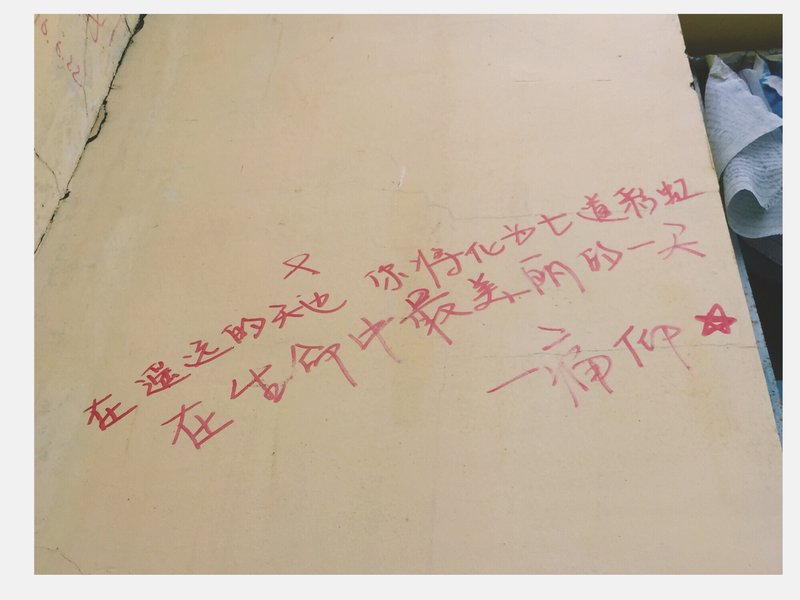 6.22
又
在遥远的天也 你将化为七道彩虹
在生命中最美丽的一天
—痛仰